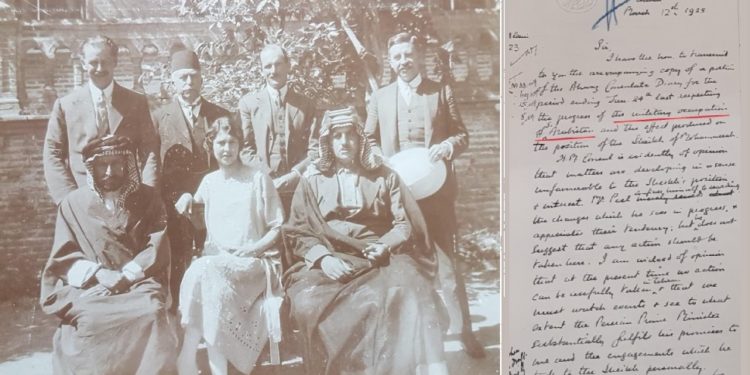 March 12th 1925
Sir,
I have the honr to transmit
to you the accompanying copy of a portion
of the Ahwaz Consulate Diary for the
period ending Jan 24th last respecting
the progress of the military occupation
of Arabistan and the effect produced on
the position of the Sheikh of Mohammerah.
H.M. Consul is evidently of opinion
that matters are developing in a sense
unfavourable to the Sheikh's position
& interest. Mr Peel
the changes which he sees in progress, &
appreciates their tendency, but does not
suggest that any action should be
taken here. I am indeed of opinion
that at the present time no action
can be usefully taken, & that we
must watch events & see to what
extent the Persian Prime Minister
substantially fulfils his promises to
me and the engagements which he
to the Sheikh personally.
23